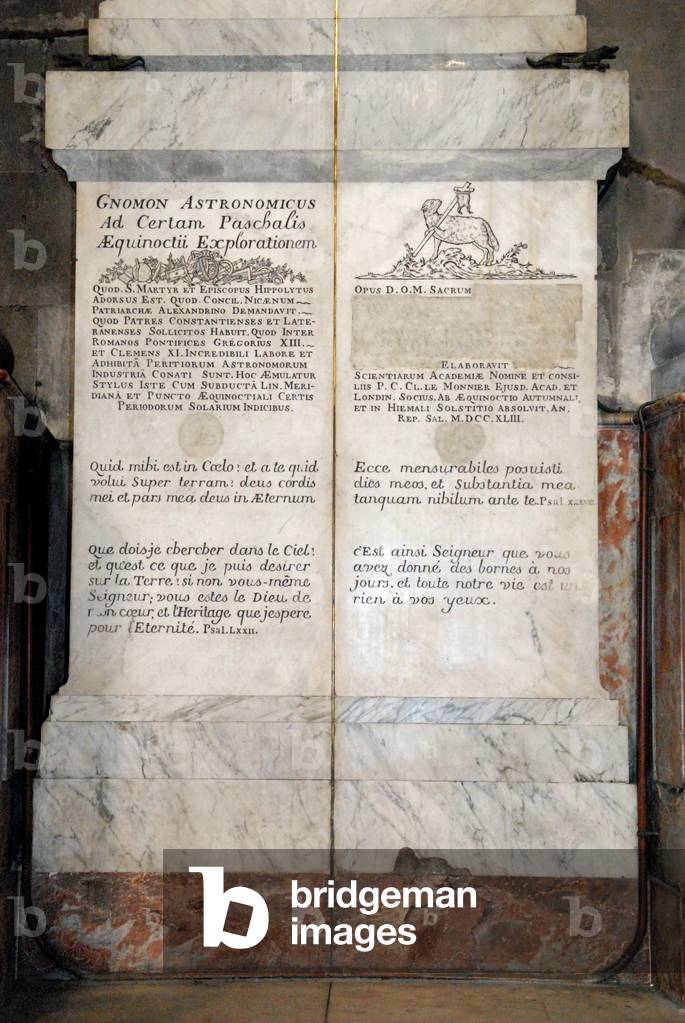 GNOMON ASTRONOMICUS
Ad Certam Paschalis
Æquinoctii Explorationem
QUOD. S. MARTYR ET EPISCOPUS HIPPOLYTUS
ADORSUS EST. QUOD CONCIL. NICÆNUM
PATRIARCHÆ ALEXANDRINO DEMANDAVIT.
QUOD PATRES CONSTANTIENSES ET LATE-
RANENSES SOLLICITOS HABUIT. QUOD INTER
ROMANOS PONTIFICES GREGORIUS XIII.
ET CLEMENS XI. INCREDIBILI LABORE ET
ADHIBITÂ PERITIORUM ASTRONOMORUM
INDUSTRIÂ CONATI SUNT. HOC ÆMULATUR
STYLUS ISTE CUM SUBDUCTÂ LIN. MERI-
DIANÂ ET PUNCTO ÆQUINOCTIALI CERTIS
PERIODORUM SOLARIUM INDICIBUS.
Quid mihi est in Cœlo: et a te quid
volui Super terram: deus cordis
mei et pars mea deus in Æternum
Que doisje chercher dans le Ciel:
et qu'est ce que je puis desirer
sur la Terre: si non vous-même
Seigneur; vous estes le Dieu de
mon cœur, et l'Heritage que jespere
pour l'Eternité. Psal. LXXII.
OPUS D.O.M. SACRUM
ELABORAVIT
SCIENTIARUM ACADEMIÆ NOMINE ET CONSI-
LIIS P. C. CL. LE MONNIER EJUSD. ACAD. ET
LONDIN. SOCIUS. AB ÆQUINOCTIO AUTUMNALI
ET IN HIEMALI SOLSTITIO ABSOLVIT. AN.
REP. SAL. M.DCC.XLIII.
Ecce mensurabiles posuisti
dies meos, et Substantia mea
tanquam nihilum ante te. Psal.
c'Est ainsi Seigneur que vous
avez donné des bornes à nos
jours. et toute notre vie est un
rien à vos yeux.
b bridgeman
images